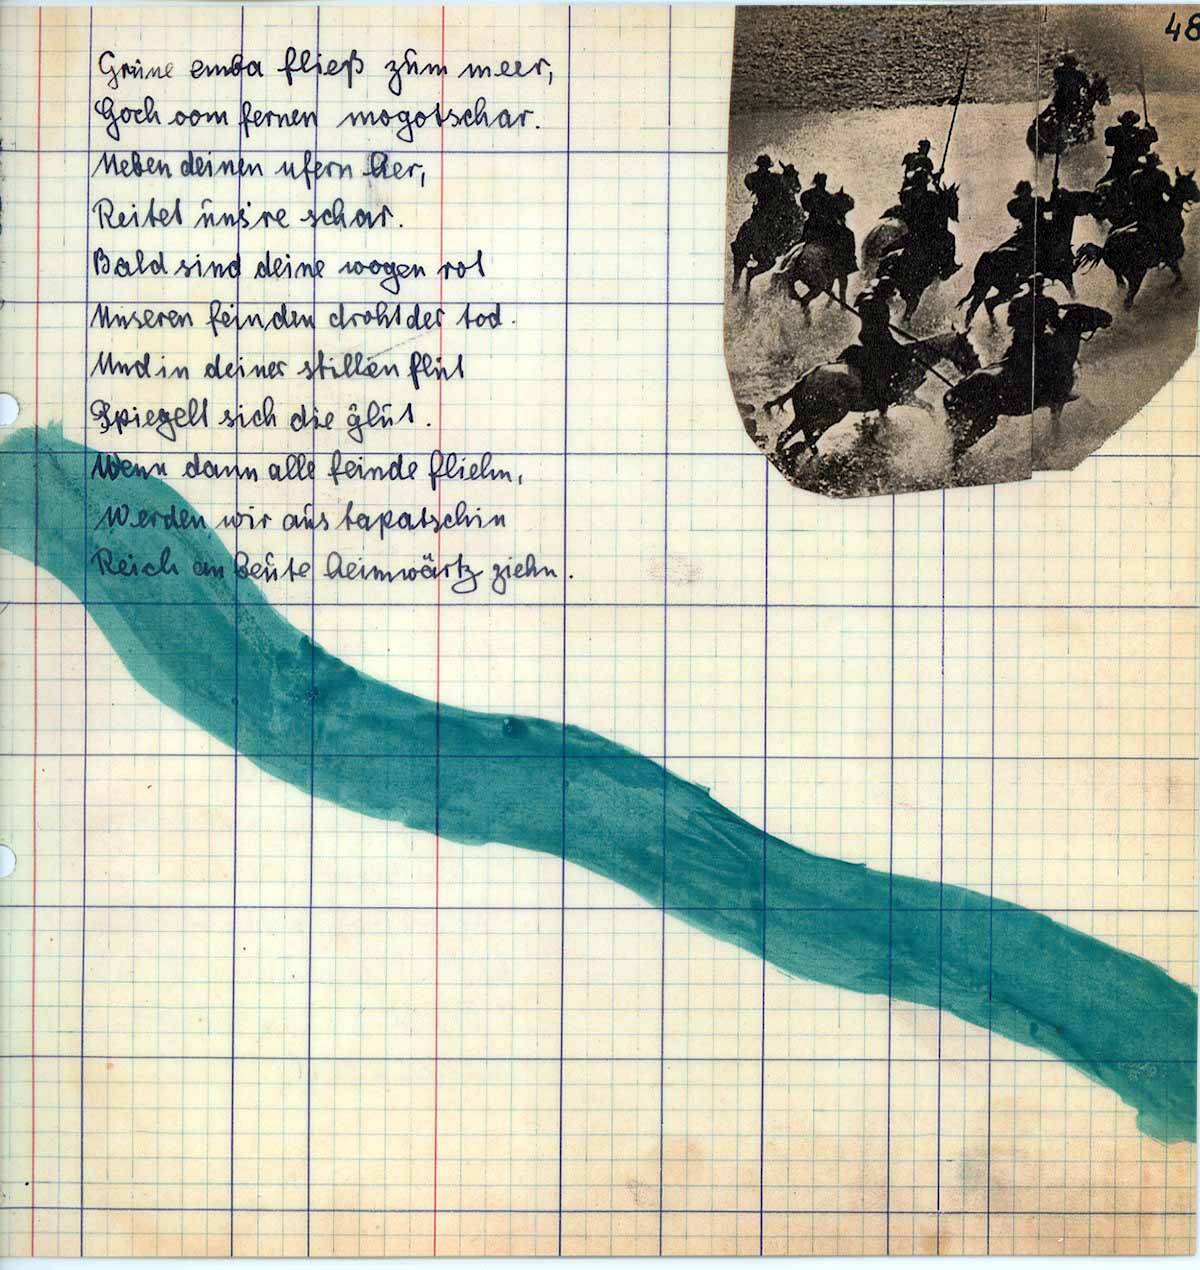 48
Grüne emba fließ züm meer,
Hoch vom fernen mogotschar.
Neben deinen ufern her,
Reitet üns're schar.
Bald sind deine wogen rot
Unseren feinden droht der tod.
Und in deiner stillen flüt
Spiegelt sich die glüt.
Wenn dann alle feinde fliehn,
Werden wir aüs tapatschin
Reich an beüte heimwärtz ziehn.